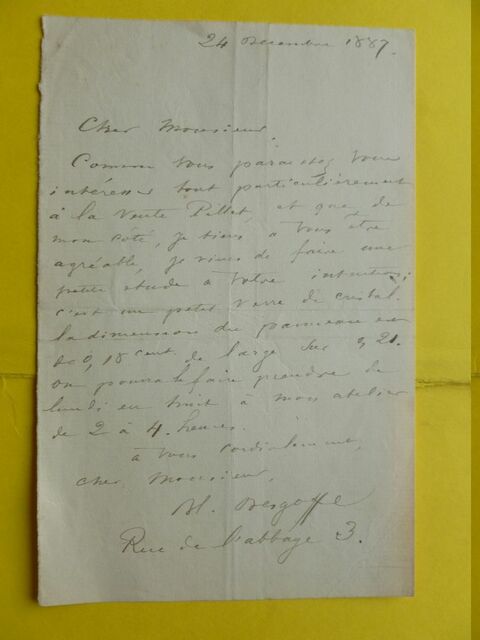 24 Decembre 1887.
Cher Monsieur.
Comme vous paraissez vous
intéresser tout particulièrement
à la Vente Pillet, et que de
mon côté, je tiens à vous être
agréable, je viens de faire une
petite étude à votre intention;
c'est un petit verre de cristal.
la dimension du panneau est
de 0,18 cent. de large sur 0,21.
on pourra le faire prendre de
lundi en huit à mon atelier
de 2 à 4 heures.
à vous cordialement,
cher Monsieur,
Bl. Desgoffe
Rue de l'abbaye 3.